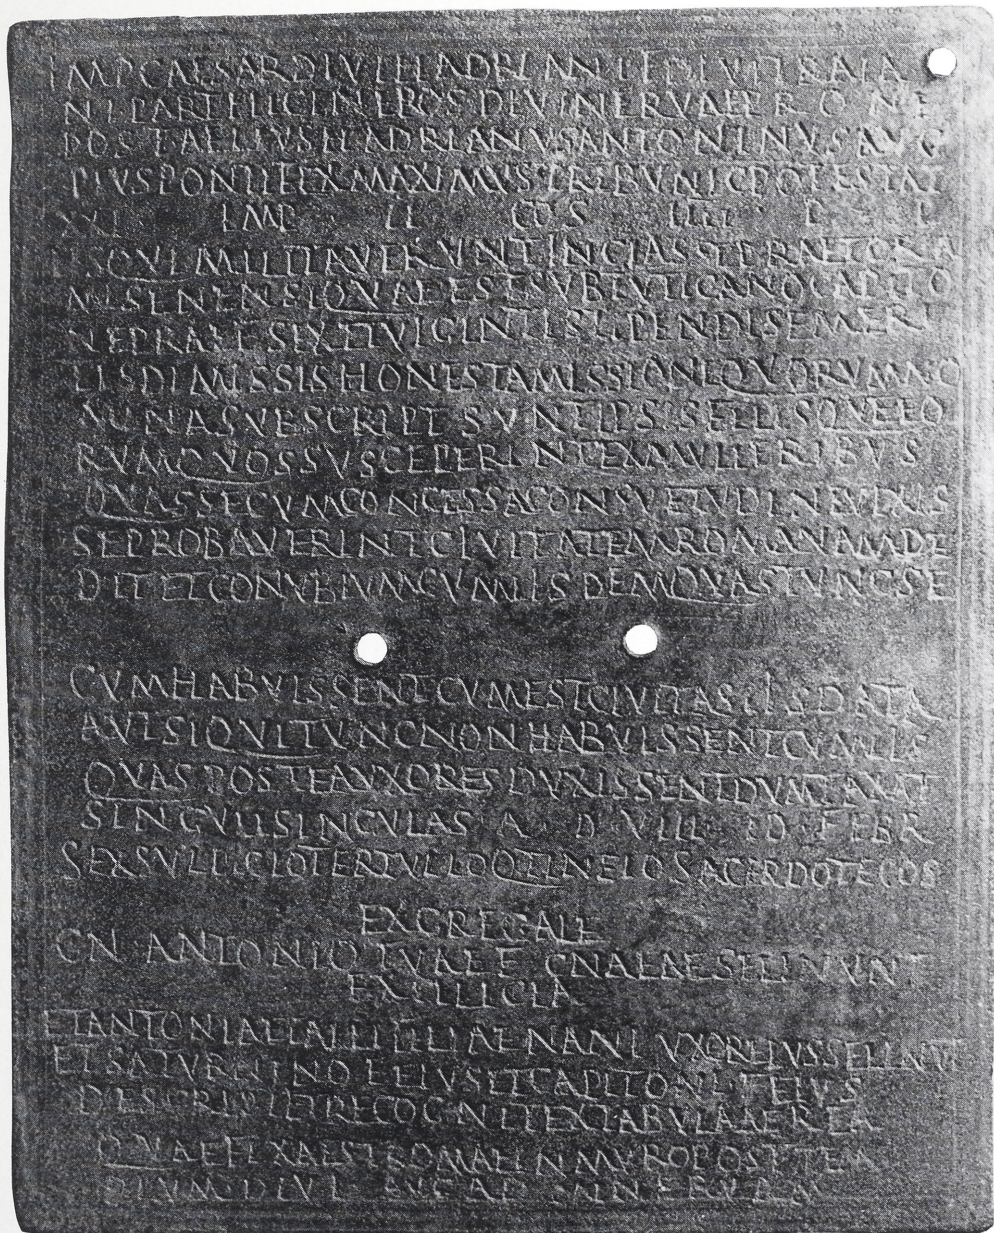 IMPCAESARDIVIHADRIANIFDIVITRAIA
NIPARTHICINEPOSDIVINERVAEPRONE
POSTAELIVSHADRIANVSANTONINVSAVG
PIVSPONTIFEXMAXIMVSTRIBVNICPOTESTAT
XXI IMP II COS IIII P P
IISQVIMILITAVERVNTINCLASSEPRAETORIA
MISENENSIQVAEESTSVBIVTICANOCAPITO
NEPRAEFSEXETVIGINTISTIPENDISEMERI
TISDIMISSISHONESTAMISSIONEQVORVMNO
MINASVBSCRIPTSVNTIPSISFILISQVEEO
RVMQVOSSVSCEPERINTEXMVLIERIBVS
QVASSECVMCONCESSACONSVETVDINEVIXIS
SEPROBAVERINTCIVITATEMROMANAMDE
DITETCONVBIVMCVMIISDEMQVASTVNCSE
CVMHABVISSENTCVMESTCIVITASIISDATA
AVTSIQVITVNCNONHABVISSENTCVMIIS
QVASPOSTEAVXORESDVXISSENTDVMTAXAT
SINGVLISINGVLAS A D VIII ID FEBR
SEXSVLPICIOTERTVLLOQTINEIOSACERDOTECOS
EXGREGALE
CN ANTONIO F CNAENESELINVNT
EXCILICIA
ETANTONIAE FILIAENANIVXOREIVSSELINVT
ETSATVRNINOFEIVSETCAPITONIFEIVS
DESCRIPTETRECOGNITEXTABVLAAEREA
QVAEFIXAESTROMAEINMVROPOSTTEM
PLVMDIVI AVGAD MINERVAM